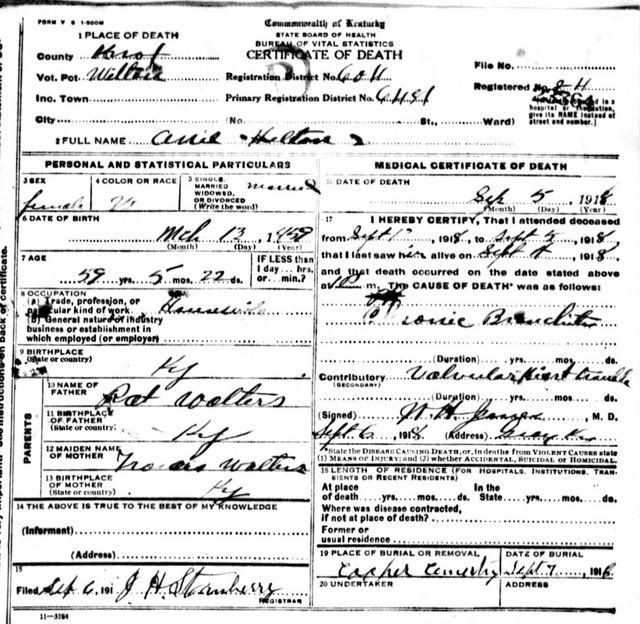 FORM V S 1-500M
Commonwealth of Kentucky
STATE BOARD OF HEALTH
BUREAU OF VITAL STATISTICS
CERTIFICATE OF DEATH
1 PLACE OF DEATH
County Knox
Vot. Pct Wilton
Inc. Town
City (No. St., Ward)
Registration District No.
Primary Registration District No.
File No.
Registered No.
give its NAME instead of
street and number.]
2 FULL NAME Hilton
PERSONAL AND STATISTICAL PARTICULARS
3 SEX
female
4 COLOR OR RACE
5 SINGLE, MARRIED WIDOWED, OR DIVORCED (Write the word)
married
6 DATE OF BIRTH
Mch 13, 1
(Month) (Day) (Year)
7 AGE
59 yrs. 5 mos. 22 ds.
IF LESS than 1 day... hrs. or... min.?
8 OCCUPATION
(a) Trade, profession, or
particular kind of work Housewife
(b) General nature of industry
business or establishment in
which employed (or employer)
9 BIRTHPLACE
(State or country) Ky
PARENTS
10 NAME OF FATHER
Pat Walters
11 BIRTHPLACE OF FATHER
(State or country) Ky
12 MAIDEN NAME OF MOTHER
Walters
13 BIRTHPLACE OF MOTHER
(State or country) Ky
14 THE ABOVE IS TRUE TO THE BEST OF MY KNOWLEDGE
(Informant)
(Address)
15
Filed Sep 6, 191 J H Stansberry
REGISTRAR
11-3184
MEDICAL CERTIFICATE OF DEATH
16 DATE OF DEATH
Sep 5, 1918
(Month) (Day) (Year)
17 I HEREBY CERTIFY, That I attended deceased
from Sept 1, 1918, to Sept 5, 1918
that I last saw h alive on Sept, 1918,
and that death occurred on the date stated above
at m. The CAUSE OF DEATH* was as follows:
Chronic Bronchitis
(Duration) yrs. mos. ds.
Contributory Valvular Heart trouble
(SECONDARY)
(Duration) yrs. mos. ds.
(Signed) , M. D.
Sept 6, 1918 (Address) Gray Ky
*State the DISEASE CAUSING DEATH, or, in deaths from VIOLENT CAUSES state
(1) MEANS OF INJURY; and (2) whether ACCIDENTAL, SUICIDAL or HOMICIDAL.
18 LENGTH OF RESIDENCE (FOR HOSPITALS, INSTITUTIONS, TRANSIENTS OR RECENT RESIDENTS)
At place of death yrs. mos. ds. In the State yrs. mos. ds.
Where was disease contracted,
if not at place of death?
Former or
usual residence
19 PLACE OF BURIAL OR REMOVAL
DATE OF BURIAL
Sept 7, 1918
20 UNDERTAKER
ADDRESS